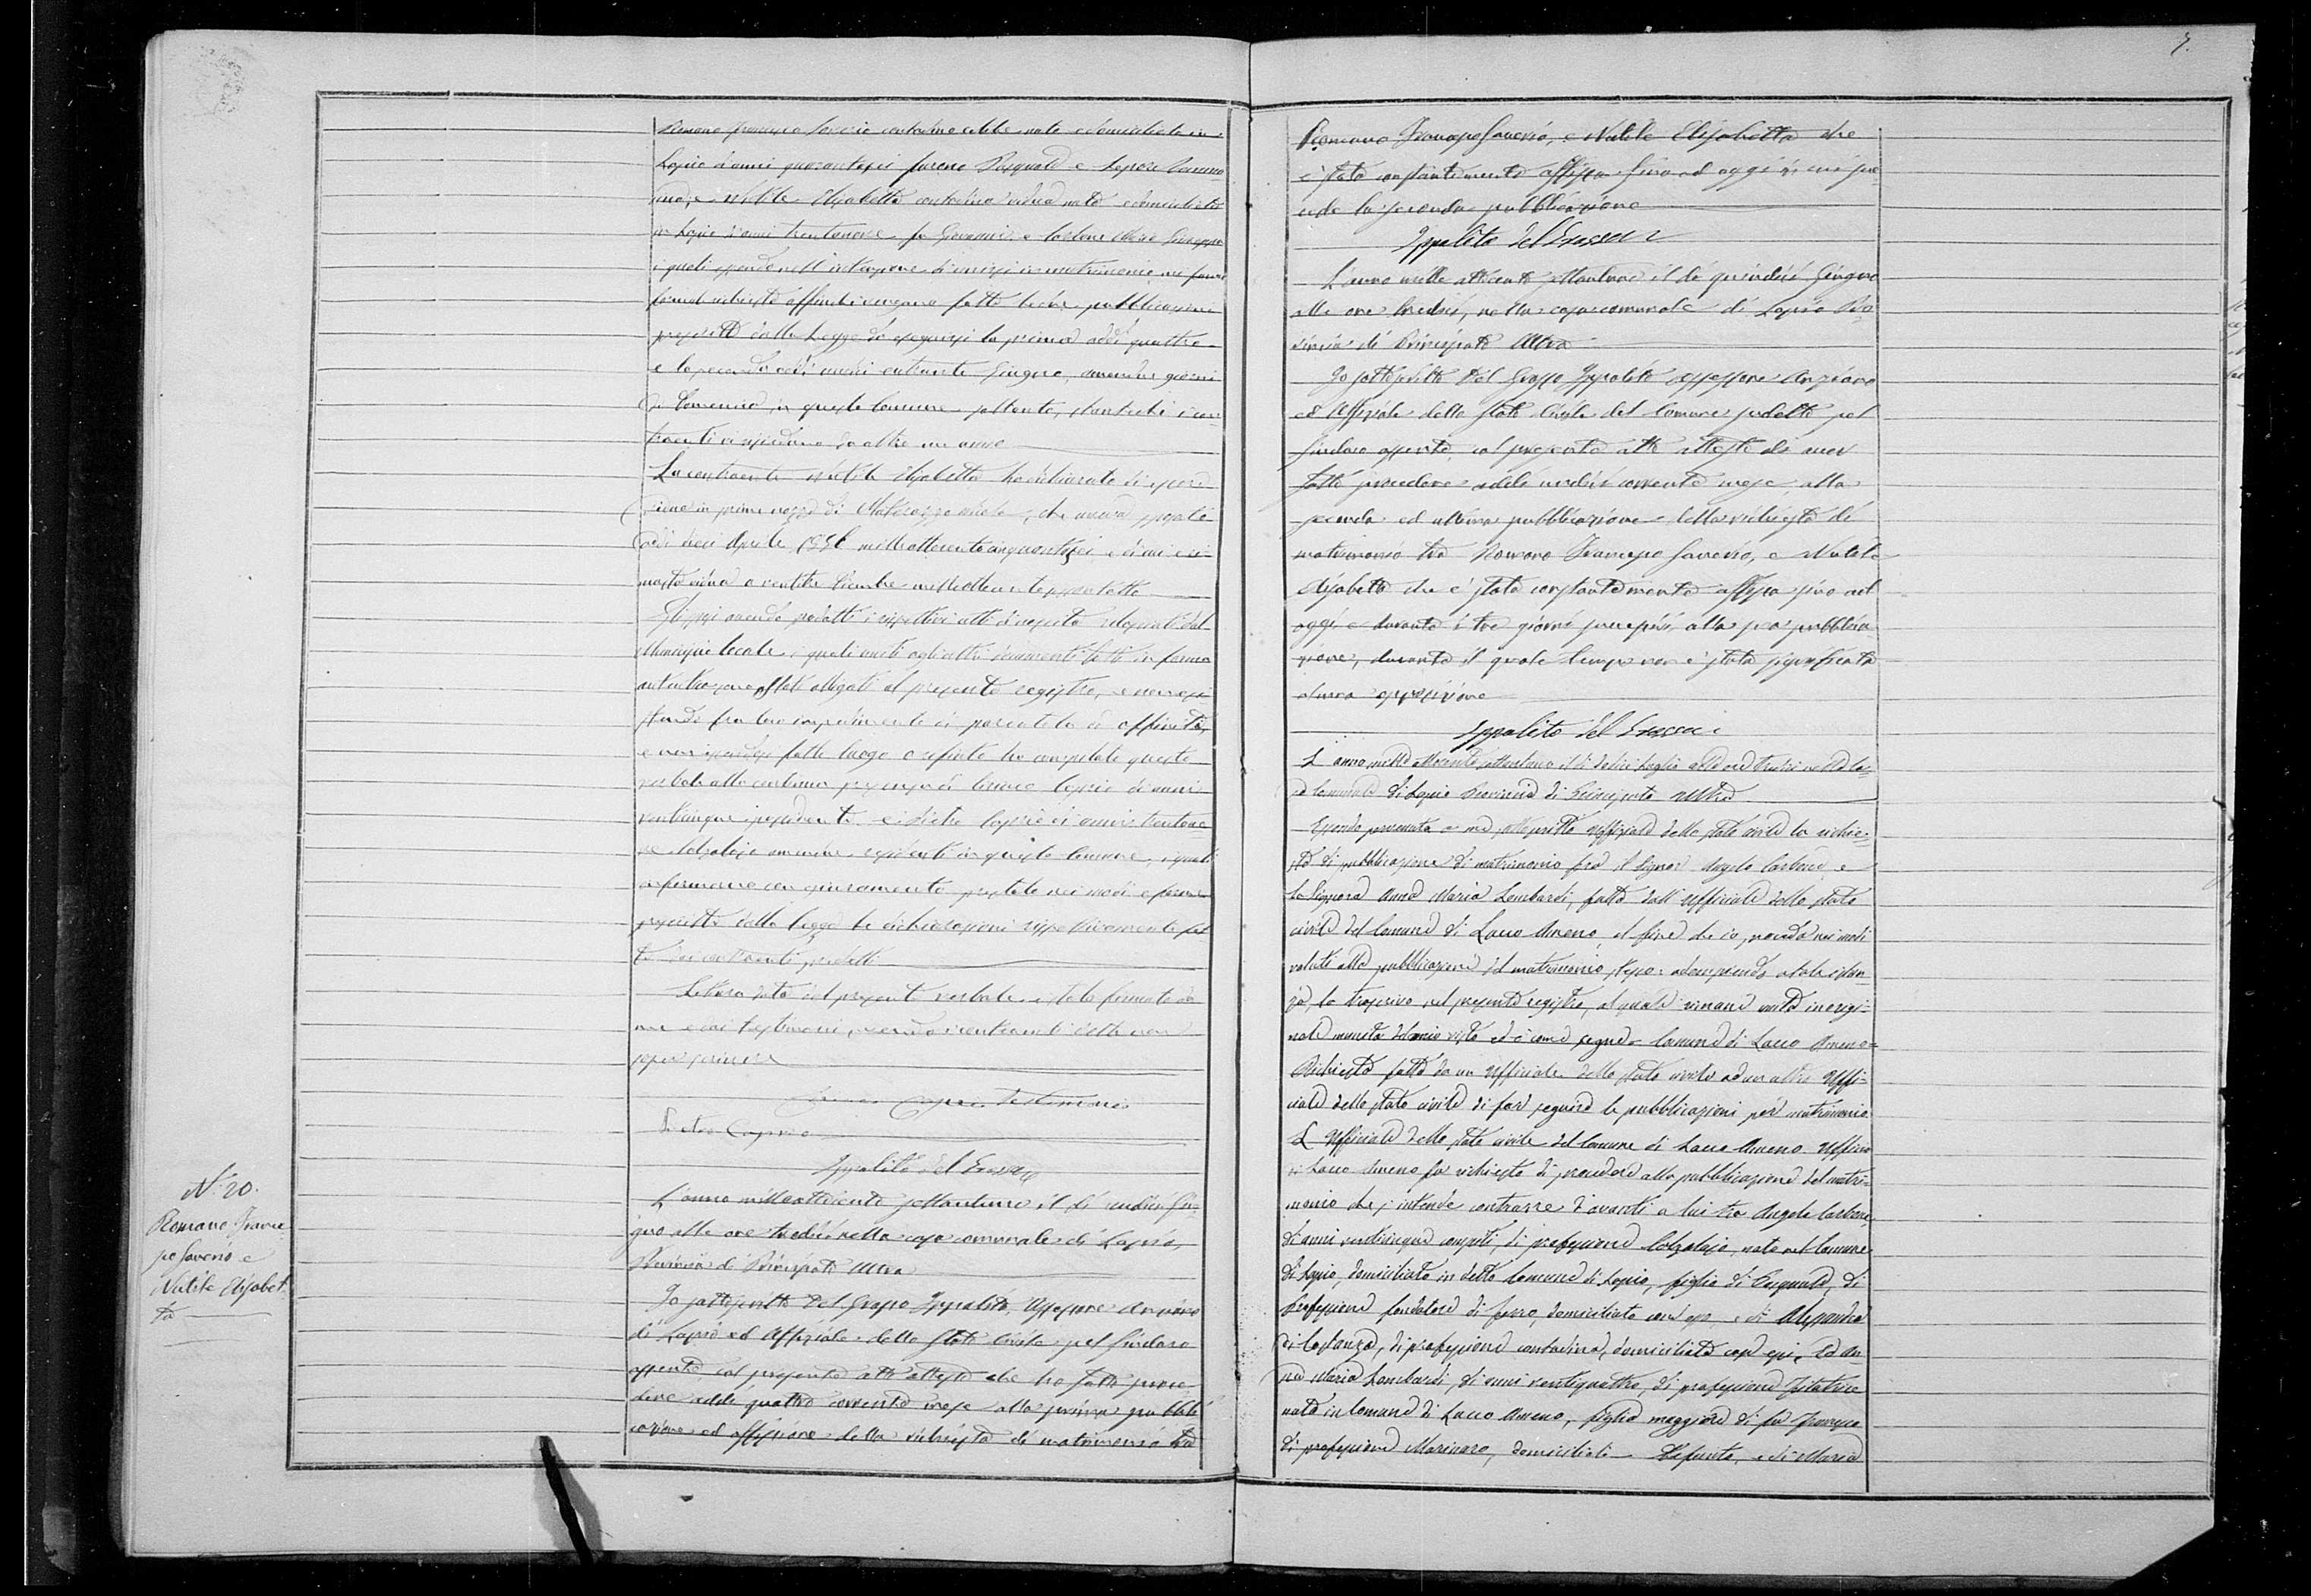 7.
Romano Francesco Saverio contadino celibe nato e domiciliato in
Lapio d'anni quarantasei furono Pasquale e Lepore Carmo
sina, e Nutile Elisabetta contadina vedova nata e domiciliata
in Lapio d'anni trentanove fu Giovanni e Carbone Maria Giuseppa
i quali essendo nell'intenzione di unirsi in matrimonio, me fanno
formal richiesta affinchè vengano fatte le due pubblicazioni
prescritte dalla Legge da eseguirsi la prima addì quattro
e la seconda addì undici entrante Giugno, amendue giorni
di Domenica in questo Comune soltanto, stantechè i con
traenti vi risiedono da oltre un anno
La contraente Nutile Elisabetta ha dichiarato di essere
vedova in prime nozze di che aveva sposato
addì dieci Aprile 1856 milleottocentocinquantasei e di cui è ri
masta vedova a ventitre Dicembre milleottocentosessantotto
Gli sposi avendo prodotti i rispettivi atti di nascita rilasciati dal
Municipio locale, i quali uniti agli altri documenti tutti in forma
autentica sono stati allegati al presente registro, e non esi
stendo fra loro impedimento di parentela o di affinità,
e non essendosi fatto luogo a rifiuto ho compilato questo
verbale alla continua presenza di Ciriaco Caprio di anni
venticinque possidente e di Pietro Caprio di anni trentano
ve Calzolajo amendue residenti in questo Comune, i quali
confermano con giuramento prestato nei modi e forme
prescritte dalla legge le dichiarazioni rispettivamente fat
te dai contraenti predetti
Lettura data del presente verbale è stato firmato da
me e dai testimoni, avendo i contraenti detto non
saper scrivere
Ciriaco Caprio Testimonio
Pietro Caprio
Ippolito del Grosso
N. 20.
Romano France
sco Saverio e
Nutile Elisabet
ta
L'anno milleottocento settantuno il dì undici Giu
gno alle ore tredici nella casa comunale di Lapio,
Provincia di Principato Ultra
Io sottoscritto Del Grosso Ippolito, Assessore Anziano
di Lapio ed Uffiziale dello Stato Civile pel Sindaco
assente col presente atto attesto che ho fatto proce
dere addì quattro corrente mese alla prima pubbli
cazione ed affissione della richiesta di matrimonio tra
Romano Francesco Saverio, e Nutile Elisabetta che
è stata constantemente affissa sino ad oggi in cui suc
cede la seconda pubblicazione
Ippolito del Grosso
L'anno mille ottocento settantuno il dì quindici Giugno
alle ore tredici, nella casa comunale di Lapio Pro
vincia di Principato Ultra
Io sottoscritto Del Grosso Ippolito Assessore Anziano
ed Uffiziale dello Stato Civile del Comune sudetto pel
Sindaco assente, col presente atto attesto di aver
fatto procedere addì undici corrente mese alla
seconda ed ultima pubblicazione della richiesta di
matrimonio tra Romano Francesco Saverio, e Nutile
Elisabetta che è stata constantemente affissa sino ad
oggi e durante i tre giorni successivi alla sua pubblica
zione, durante il quale tempo non è stata significata
alcuna opposizione
Ippolito del Grosso
L'anno mille ottocento settantuno il dì dodici Luglio alle ore tredici nella Ca=
sa Comunale di Lapio Provincia di Principato Ultra
Essendo pervenuta a me sottoscritto Uffiziale dello stato civile la richie=
sta di pubblicazione di matrimonio fra il Signor Angelo Carbone, e
la Signora Anna Maria Lombardi, fatta dall'Ufficiale dello stato
civile del Comune di Lacco Ameno, al fine che io proceda nei modi
voluti alla pubblicazione del matrimonio stesso: adempiendo a tale istan=
za, la trascrivo nel presente registro, al quale rimane unita in origi=
nale munita del mio visto ed è come segue= Comune di Lacco Ameno=
Richiesta fatta da un Ufficiale dello stato civile ad un altro Uffi=
ciale dello stato civile di far seguire le pubblicazioni per matrimonio.
L'Ufficiale dello stato civile del Comune di Lacco Ameno Ufficio
di Lacco Ameno fa richiesta di procedere alla pubblicazione del matri=
monio che s'intende contrarre davanti a lui tra Angelo Carbone,
di anni venticinque compiti, di professione Calzolajo, nato nel Comune
di Lapio, domiciliato in detto Comune di Lapio, figlio di Pasquale, di
professione fonditore di ferro, domiciliato con esso e di Alessandra
di Costanza, di professione contadina, domiciliata con essi, ed An=
na Maria Lombardi, di anni ventiquattro, di professione filatrice
nata in Comune di Lacco Ameno, figlia maggiore di fu Francesco
di professione Marinaro, domiciliato — defunto, e di Maria